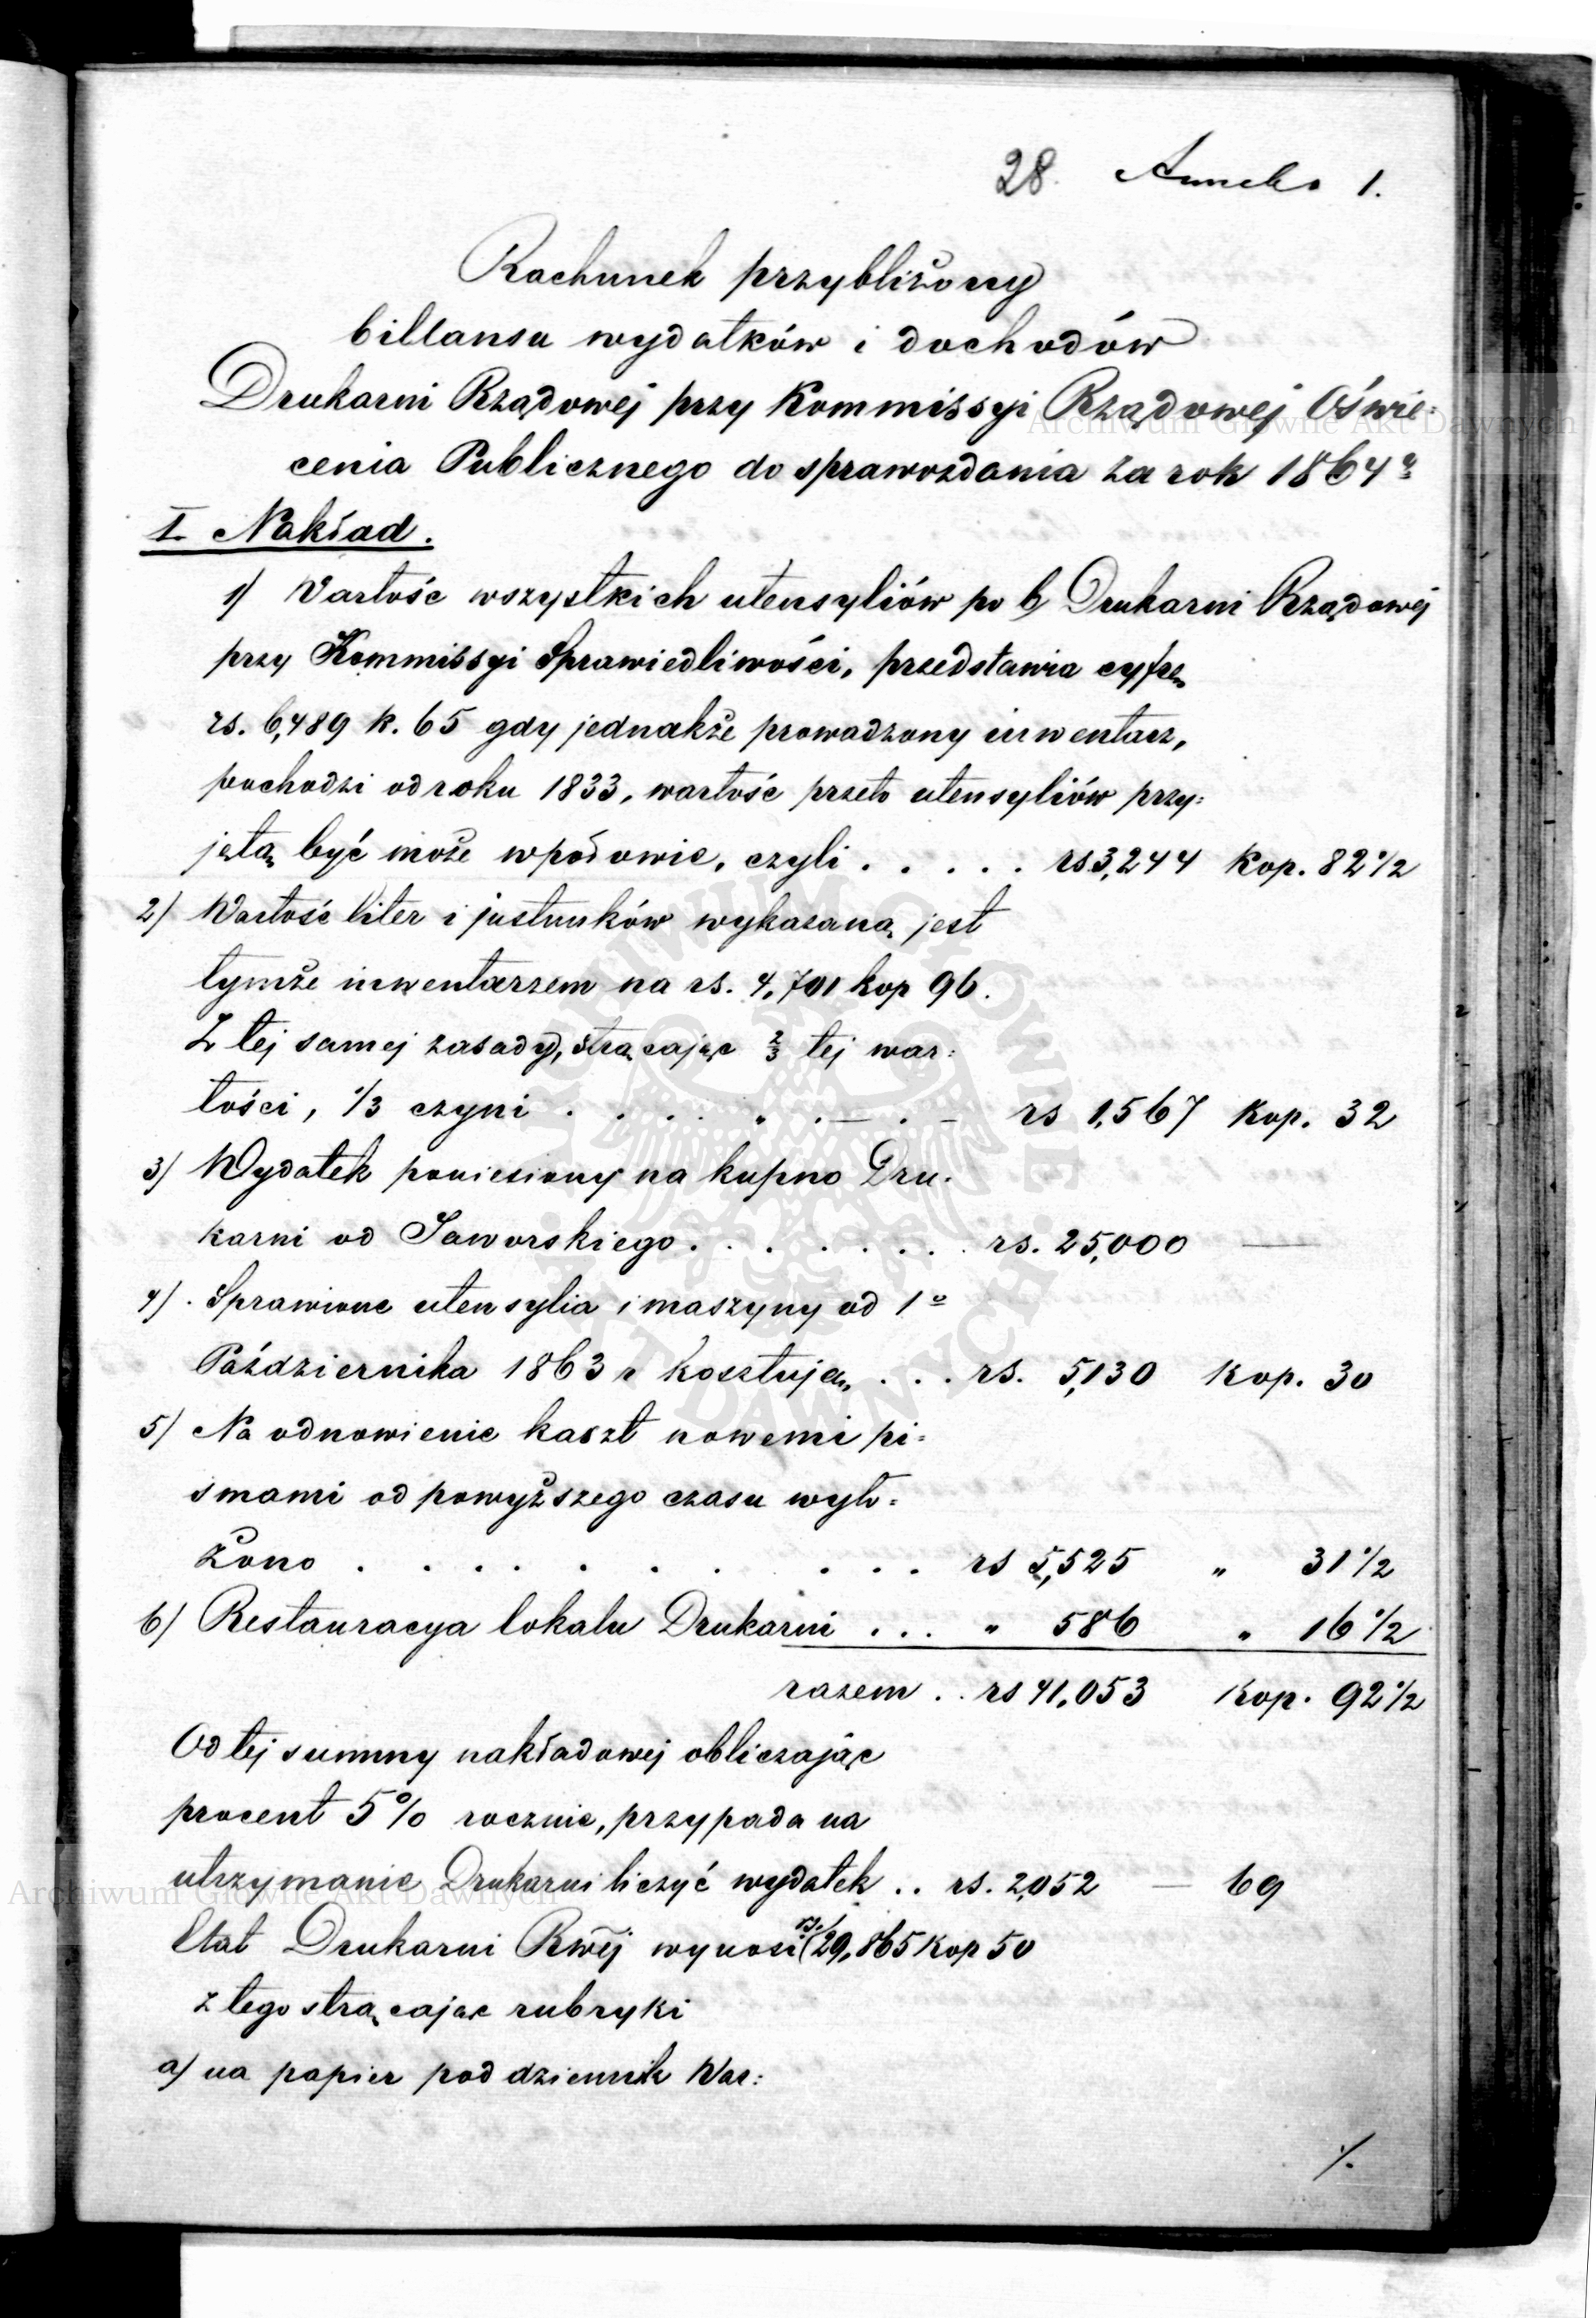 28. Annex 1.
Rachunek przybliżony
billansu wydatków i dochodów
Drukarni Rządowej przy Kommissyi Rządowej Oświe=
cenia Publicznego do sprawozdania za rok 1864 r.
I. Nakład.
1) Wartość wszystkich utensyliów po b. Drukarni Rządowej
przy Kommissyi Sprawiedliwości, przedstawia cyfrę
rs. 6,489 k. 65 gdy jednakże prowadzony inwentarz,
pochodzi od roku 1833, wartość przeto utensyliów przy=
jętą być może wpołowie, czyli . . . . . rs 3,244 Kop. 82 1/2
2) Wartość liter i justunków wykazaną jest
tymże inwentarzem na rs. 4,701 kop 96.
Z tej samej zasady, strącając 2/3 tej war=
tości, 1/3 czyni . . . . . . — . — rs 1,567 Kop. 32
3) Wydatek poniesiony na kupno Dru=
karni od Jaworskiego . . . . . . . rs. 25,000 —
4) Sprawione utensylia i maszyny od 1o
Października 1863 r kosztują, . . . rs. 5,130 Kop. 30
5) Na odnowienie kaszt nowemi pi=
smami od powyższego czasu wyło=
żono . . . . . . . . . . rs 5,525 " 31 1/2
6) Restauracya lokalu Drukarni . . . " 586 " 16 1/2
razem . . rs 41,053 Kop. 92 1/2
Od tej summy nakładowej obliczając
procent 5% rocznie, przypada na
utrzymanie Drukarni liczyć wydatek . . rs. 2,052 — 69
Etat Drukarni Rwéj wynosi rs. 29,865 Kop 50
z tego strącając rubryki
a) na papier pod dziennik War=
./.
Archiwum Główne Akt Dawnych
Archiwum Główne Akt Dawnych
ARCHIWUM GŁÓWNE AKT DAWNYCH